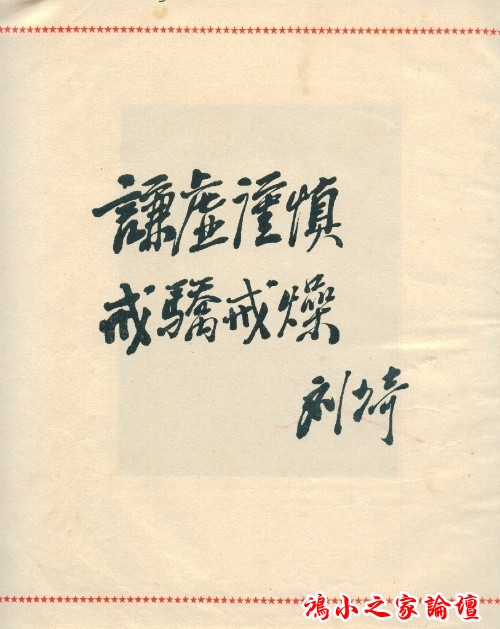 謙虛謹慎
戒驕戒燥
刘少奇
鴻小之家論壇